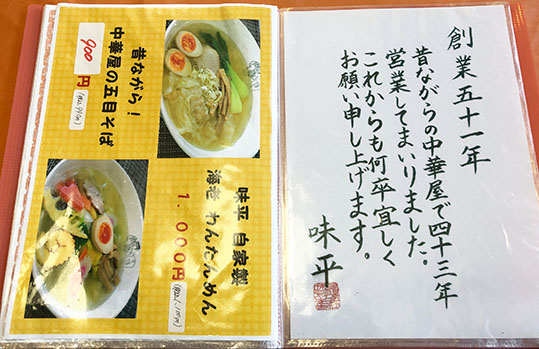 創業五十一年
昔ながらの中華屋で四十三年
営業してまいりました。
これからも何卒宜しく
お願い申し上げます。
味平
味平 自家製
海老 わんたんめん
1.000円
昔ながら!
中華屋の五目そば
900円